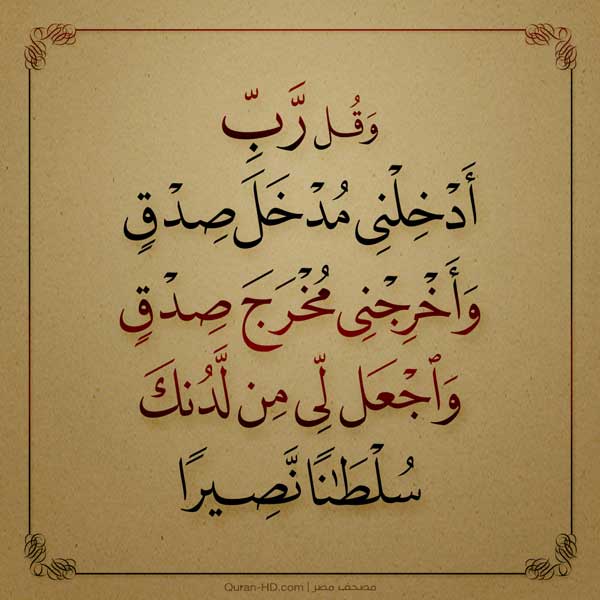 وَقُل رَّبِّ
أَدْخِلْنِى مُدْخَلَ صِدْقٍ
وَأَخْرِجْنِى مُخْرَجَ صِدْقٍ
وَٱجْعَل لِّى مِن لَّدُنكَ
سُلْطَٰنًا نَّصِيرًا
Quran-HD.com | مصحف مصر